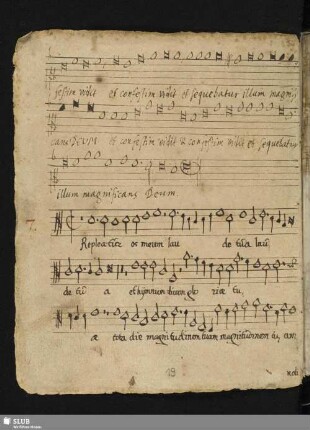 sestim vidit et confestim vidit et sequebatur illum magnifi
cans DEUM et confestim vidit & confestim vidit et sequebatur
illum magnificans Deum
7.
Repleatur os meum lau de tua lau
de tu a et hymnum dicam glo riae tu
ae tota die magnitudinem tuam magnitudinem tu am
19
noli
SLUB